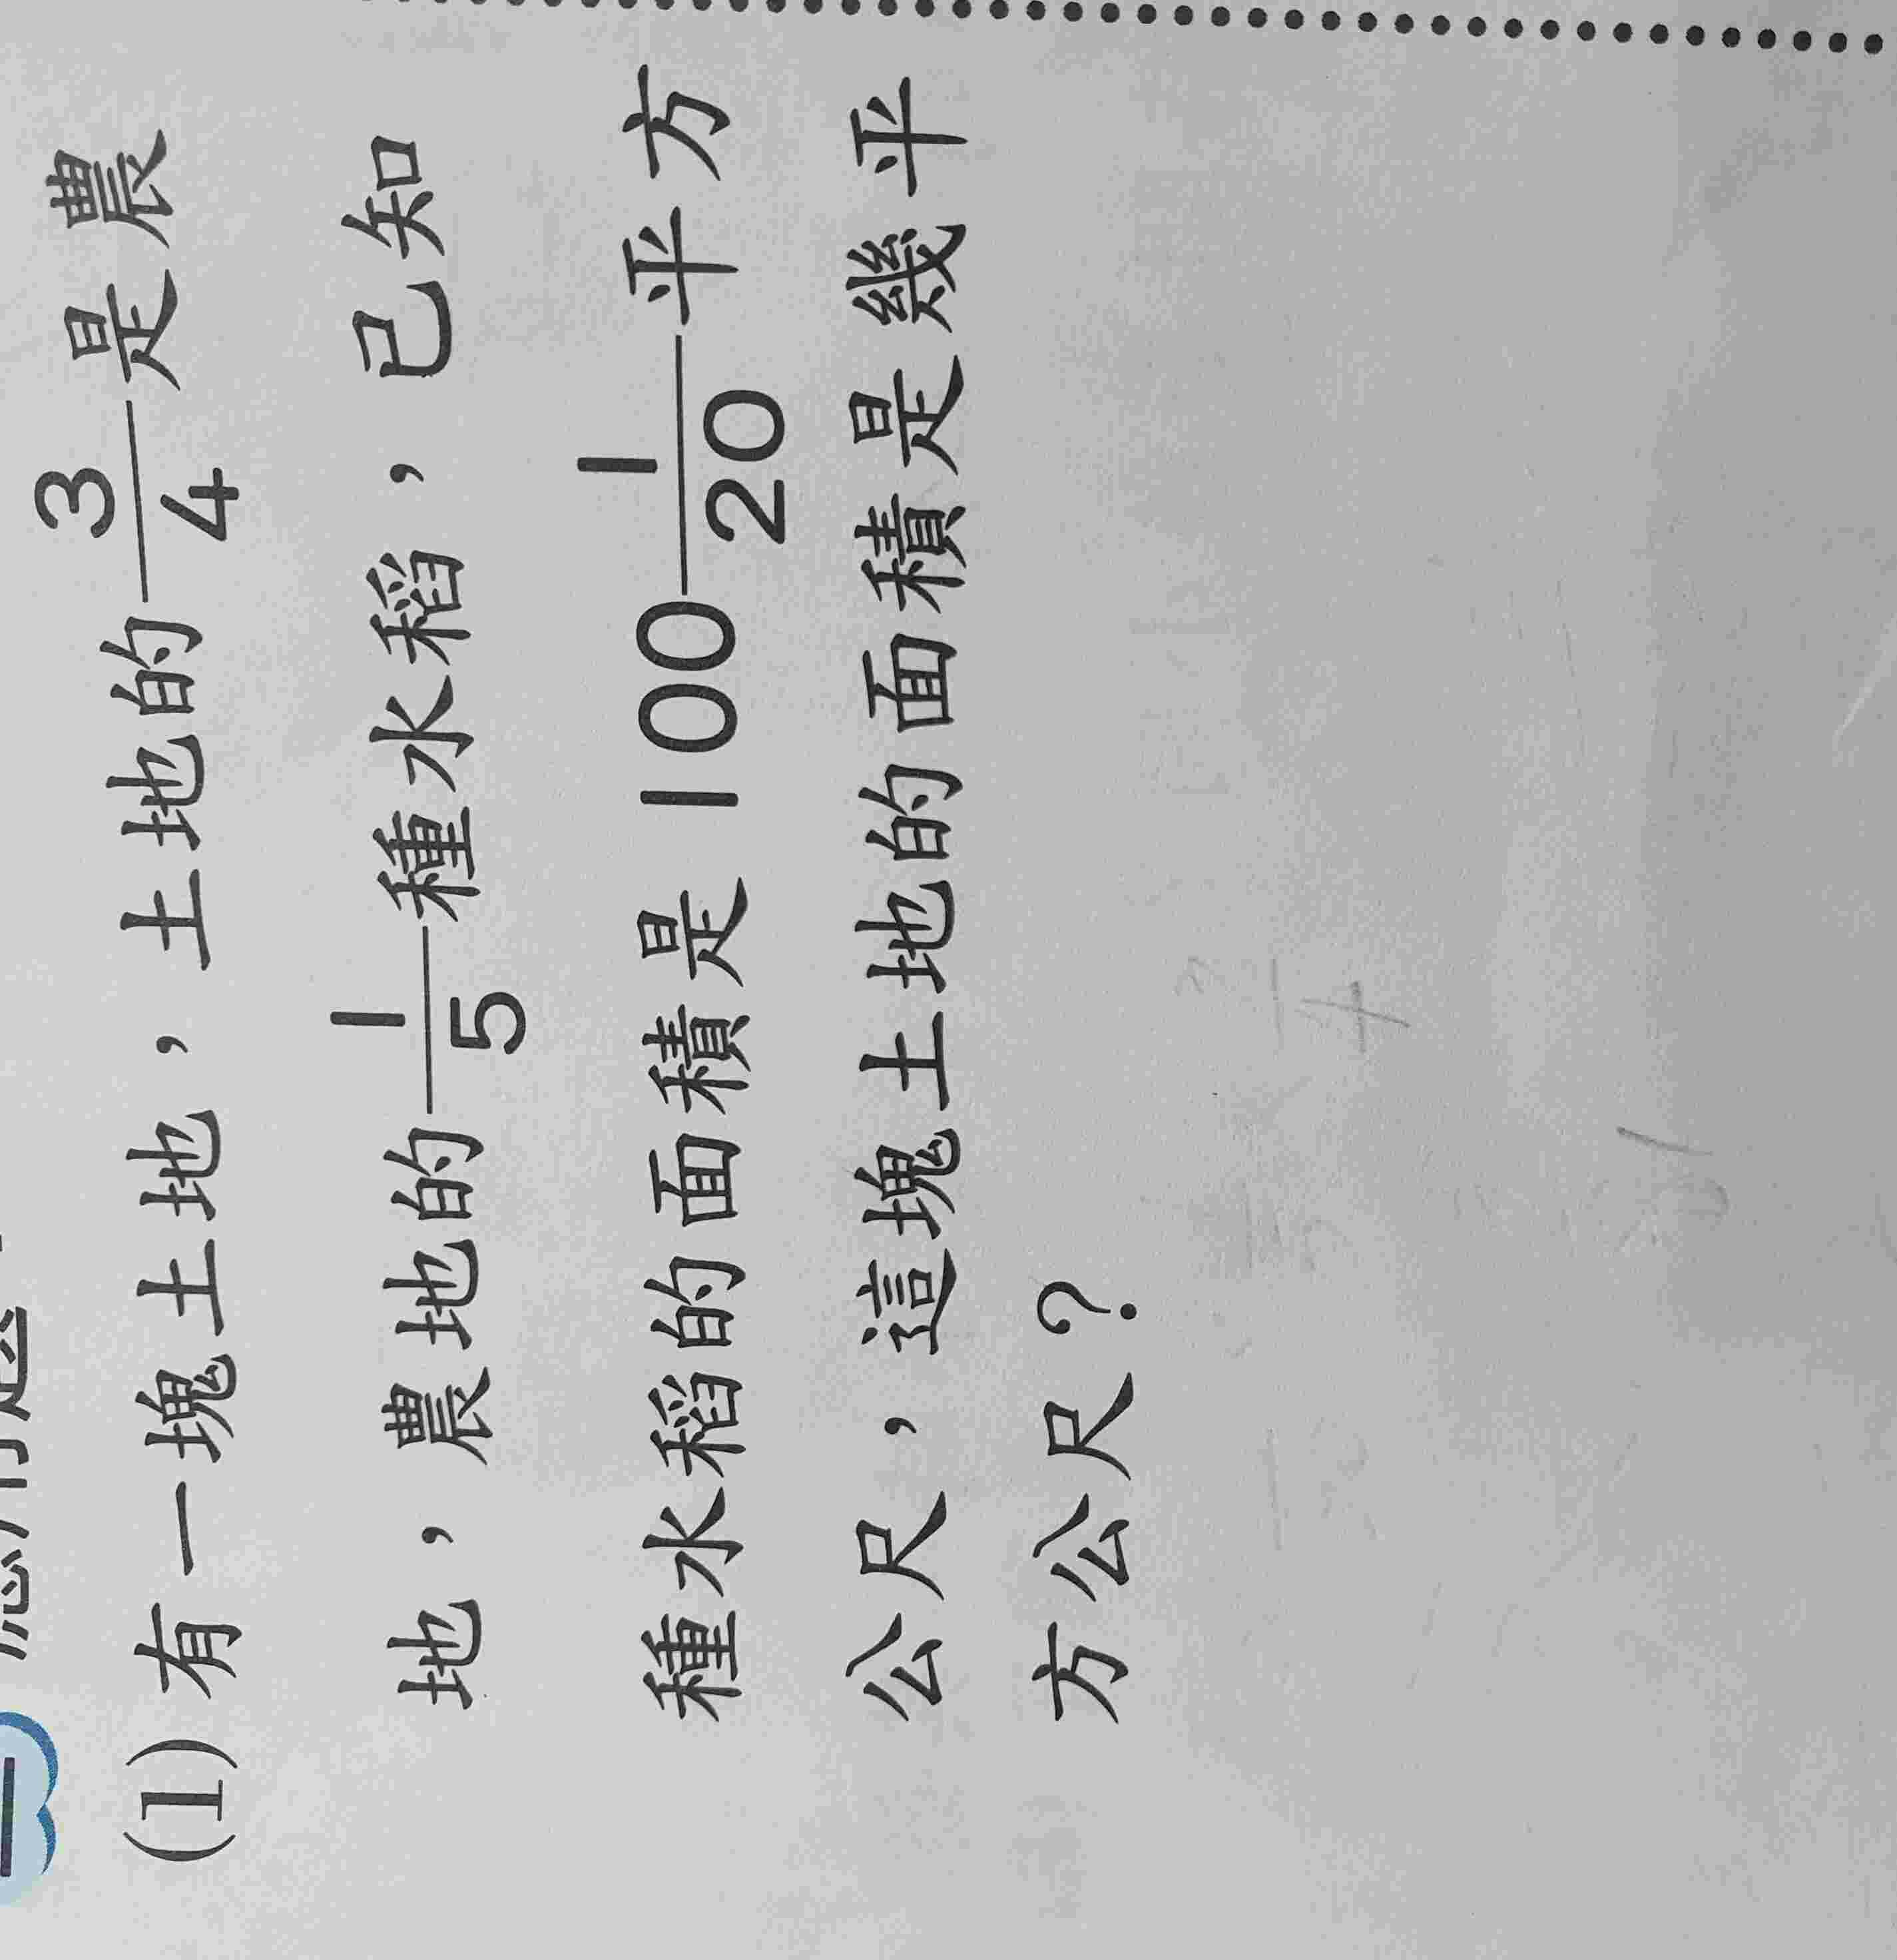 (1) 有一塊土地，土地的 3/4 是農
地，農地的 1/5 種水稻，已知
種水稻的面積是 100 1/20 平方
公尺，這塊土地的面積是幾平
方公尺？